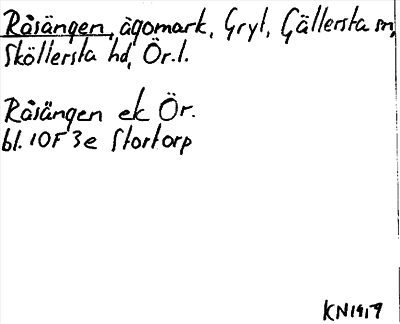 Råsängen, ägomark, Gryt, Gällersta sn,
Sköllersta hd, Ör.l.
Råsängen ek Ör.
bl. 10F 3e Stortorp
KN1917